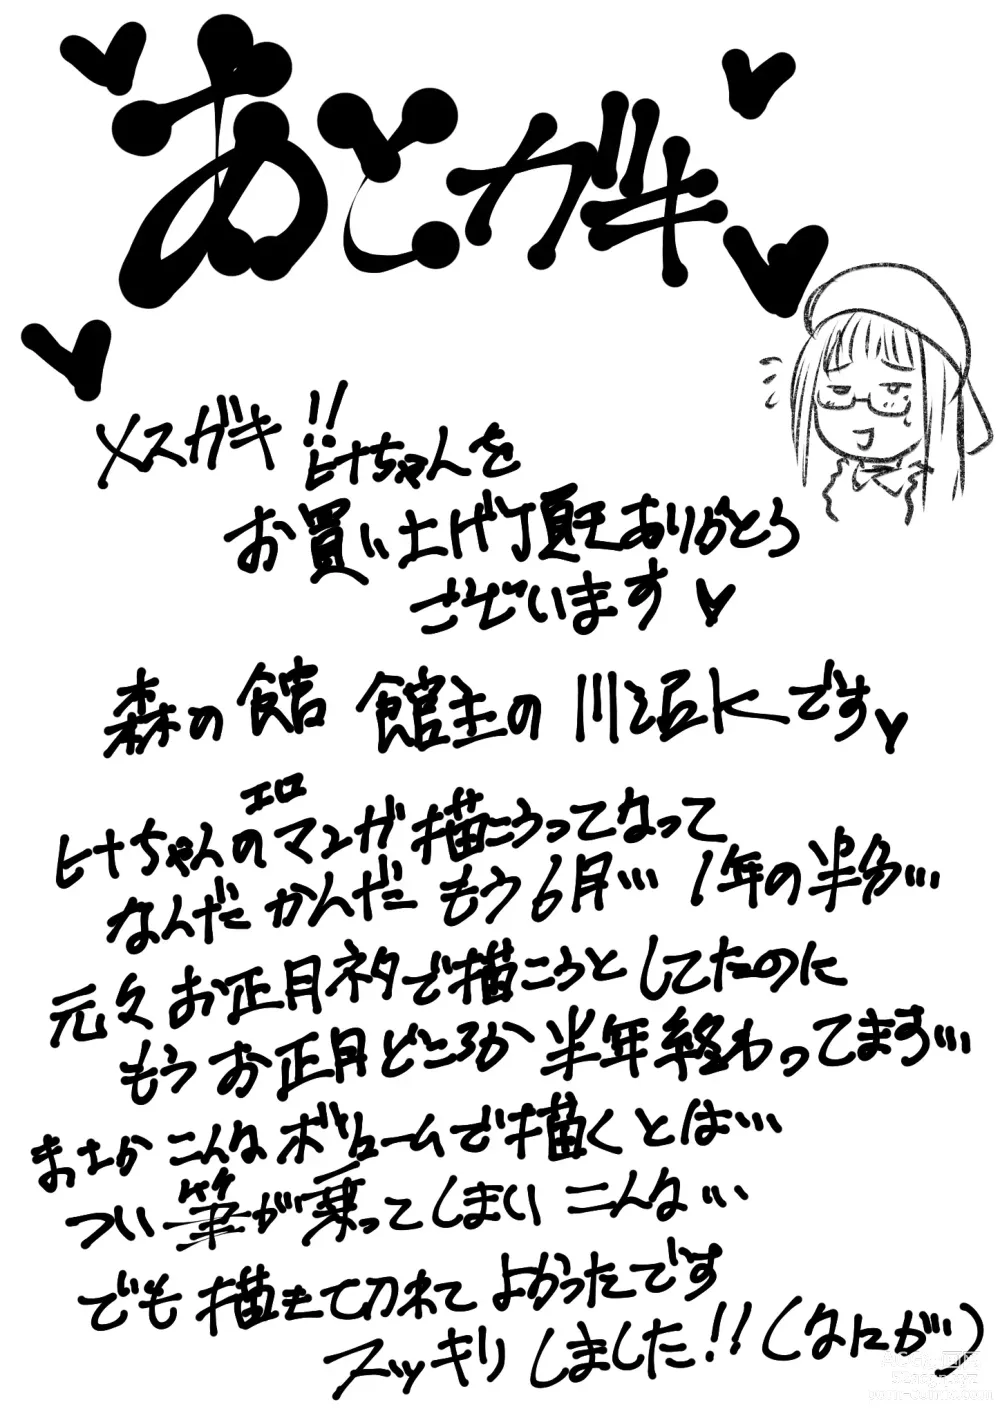 あとガキ
メスガキ!!
ヒナちゃんを
お買い上げ頂きありがとう
ございます♥
森の館 館主の 川沿Kです♥
エロ
ヒナちゃんのマンガ描こうってなって
なんだかんだもう6月… 1年の半分…
元々お正月ネタで描こうとしてたのに
もうお正月どころか半年終わってます…
まさかこんなボリュームで描くとは…
つい筆が乗ってしまいこんな…
でも描き切れてよかったです
スッキリしました!!(なにが)